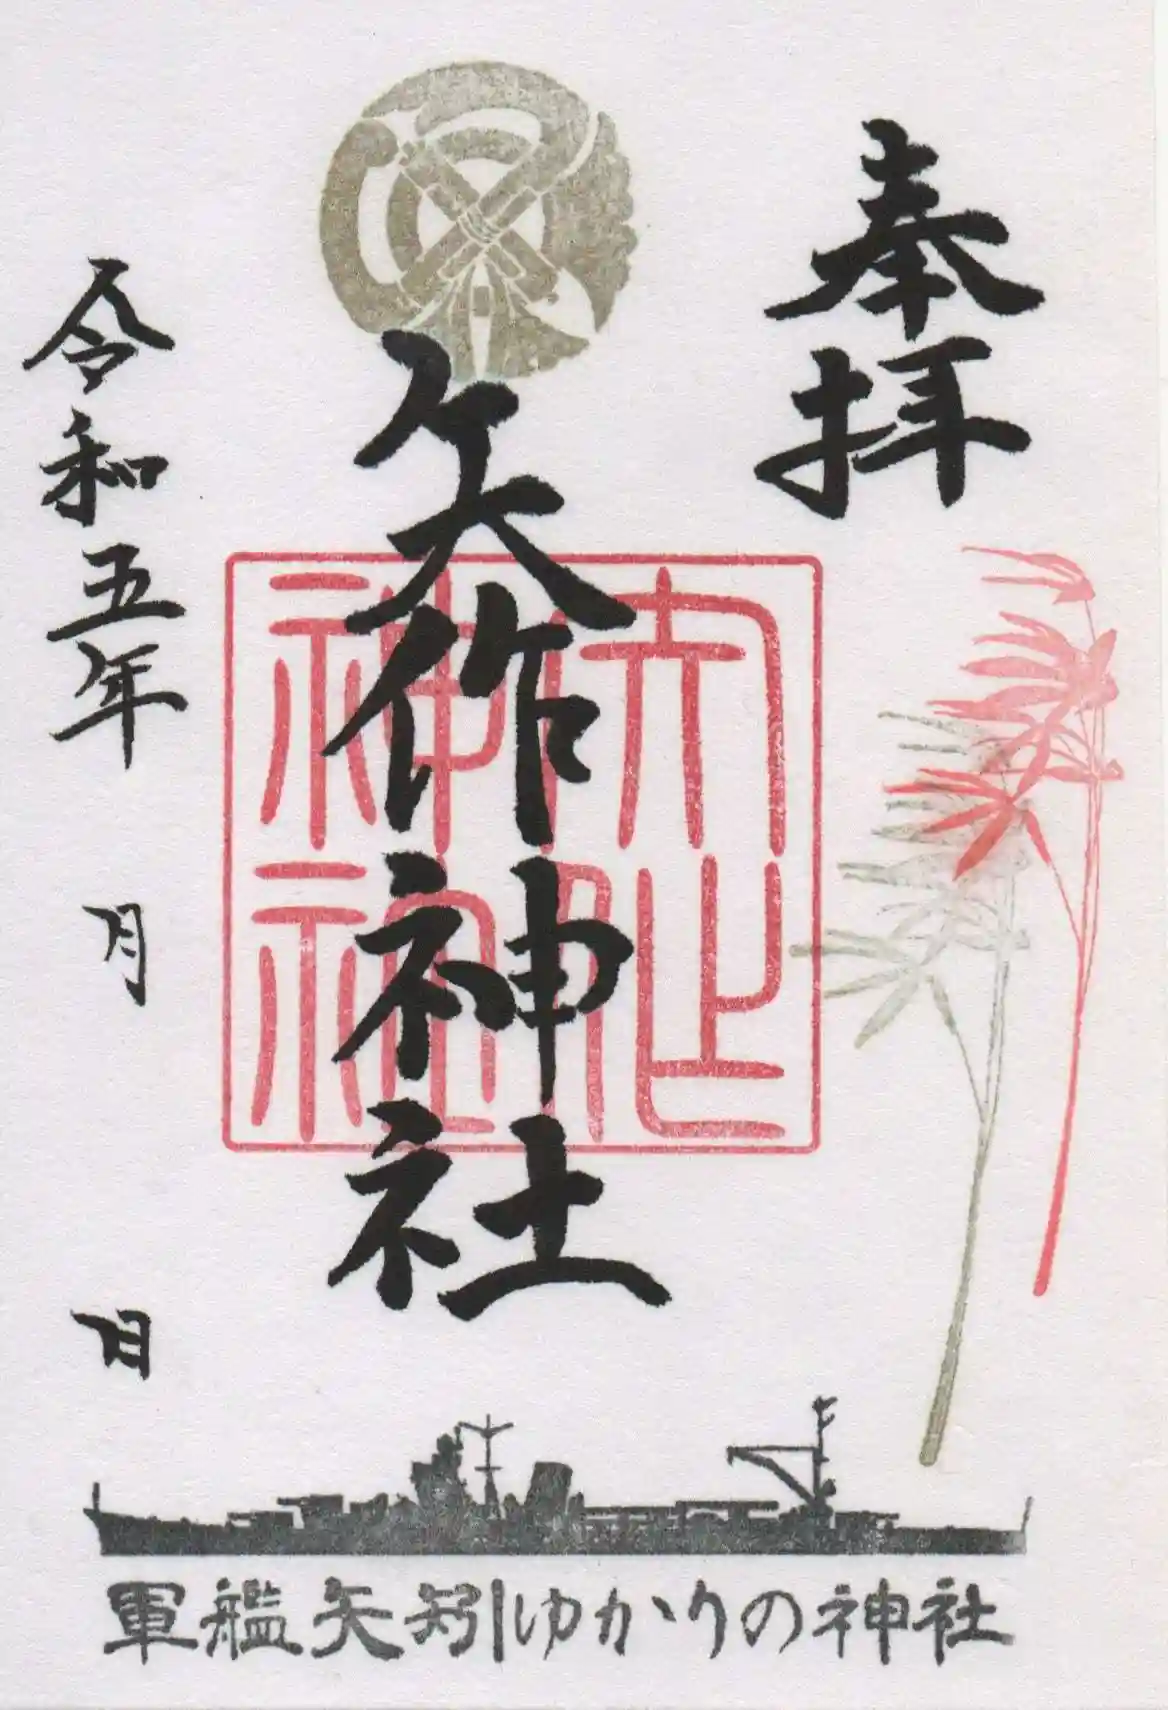 奉拝
矢作神社
矢作
神社
令和五年 月 日
軍艦矢矧ゆかりの神社